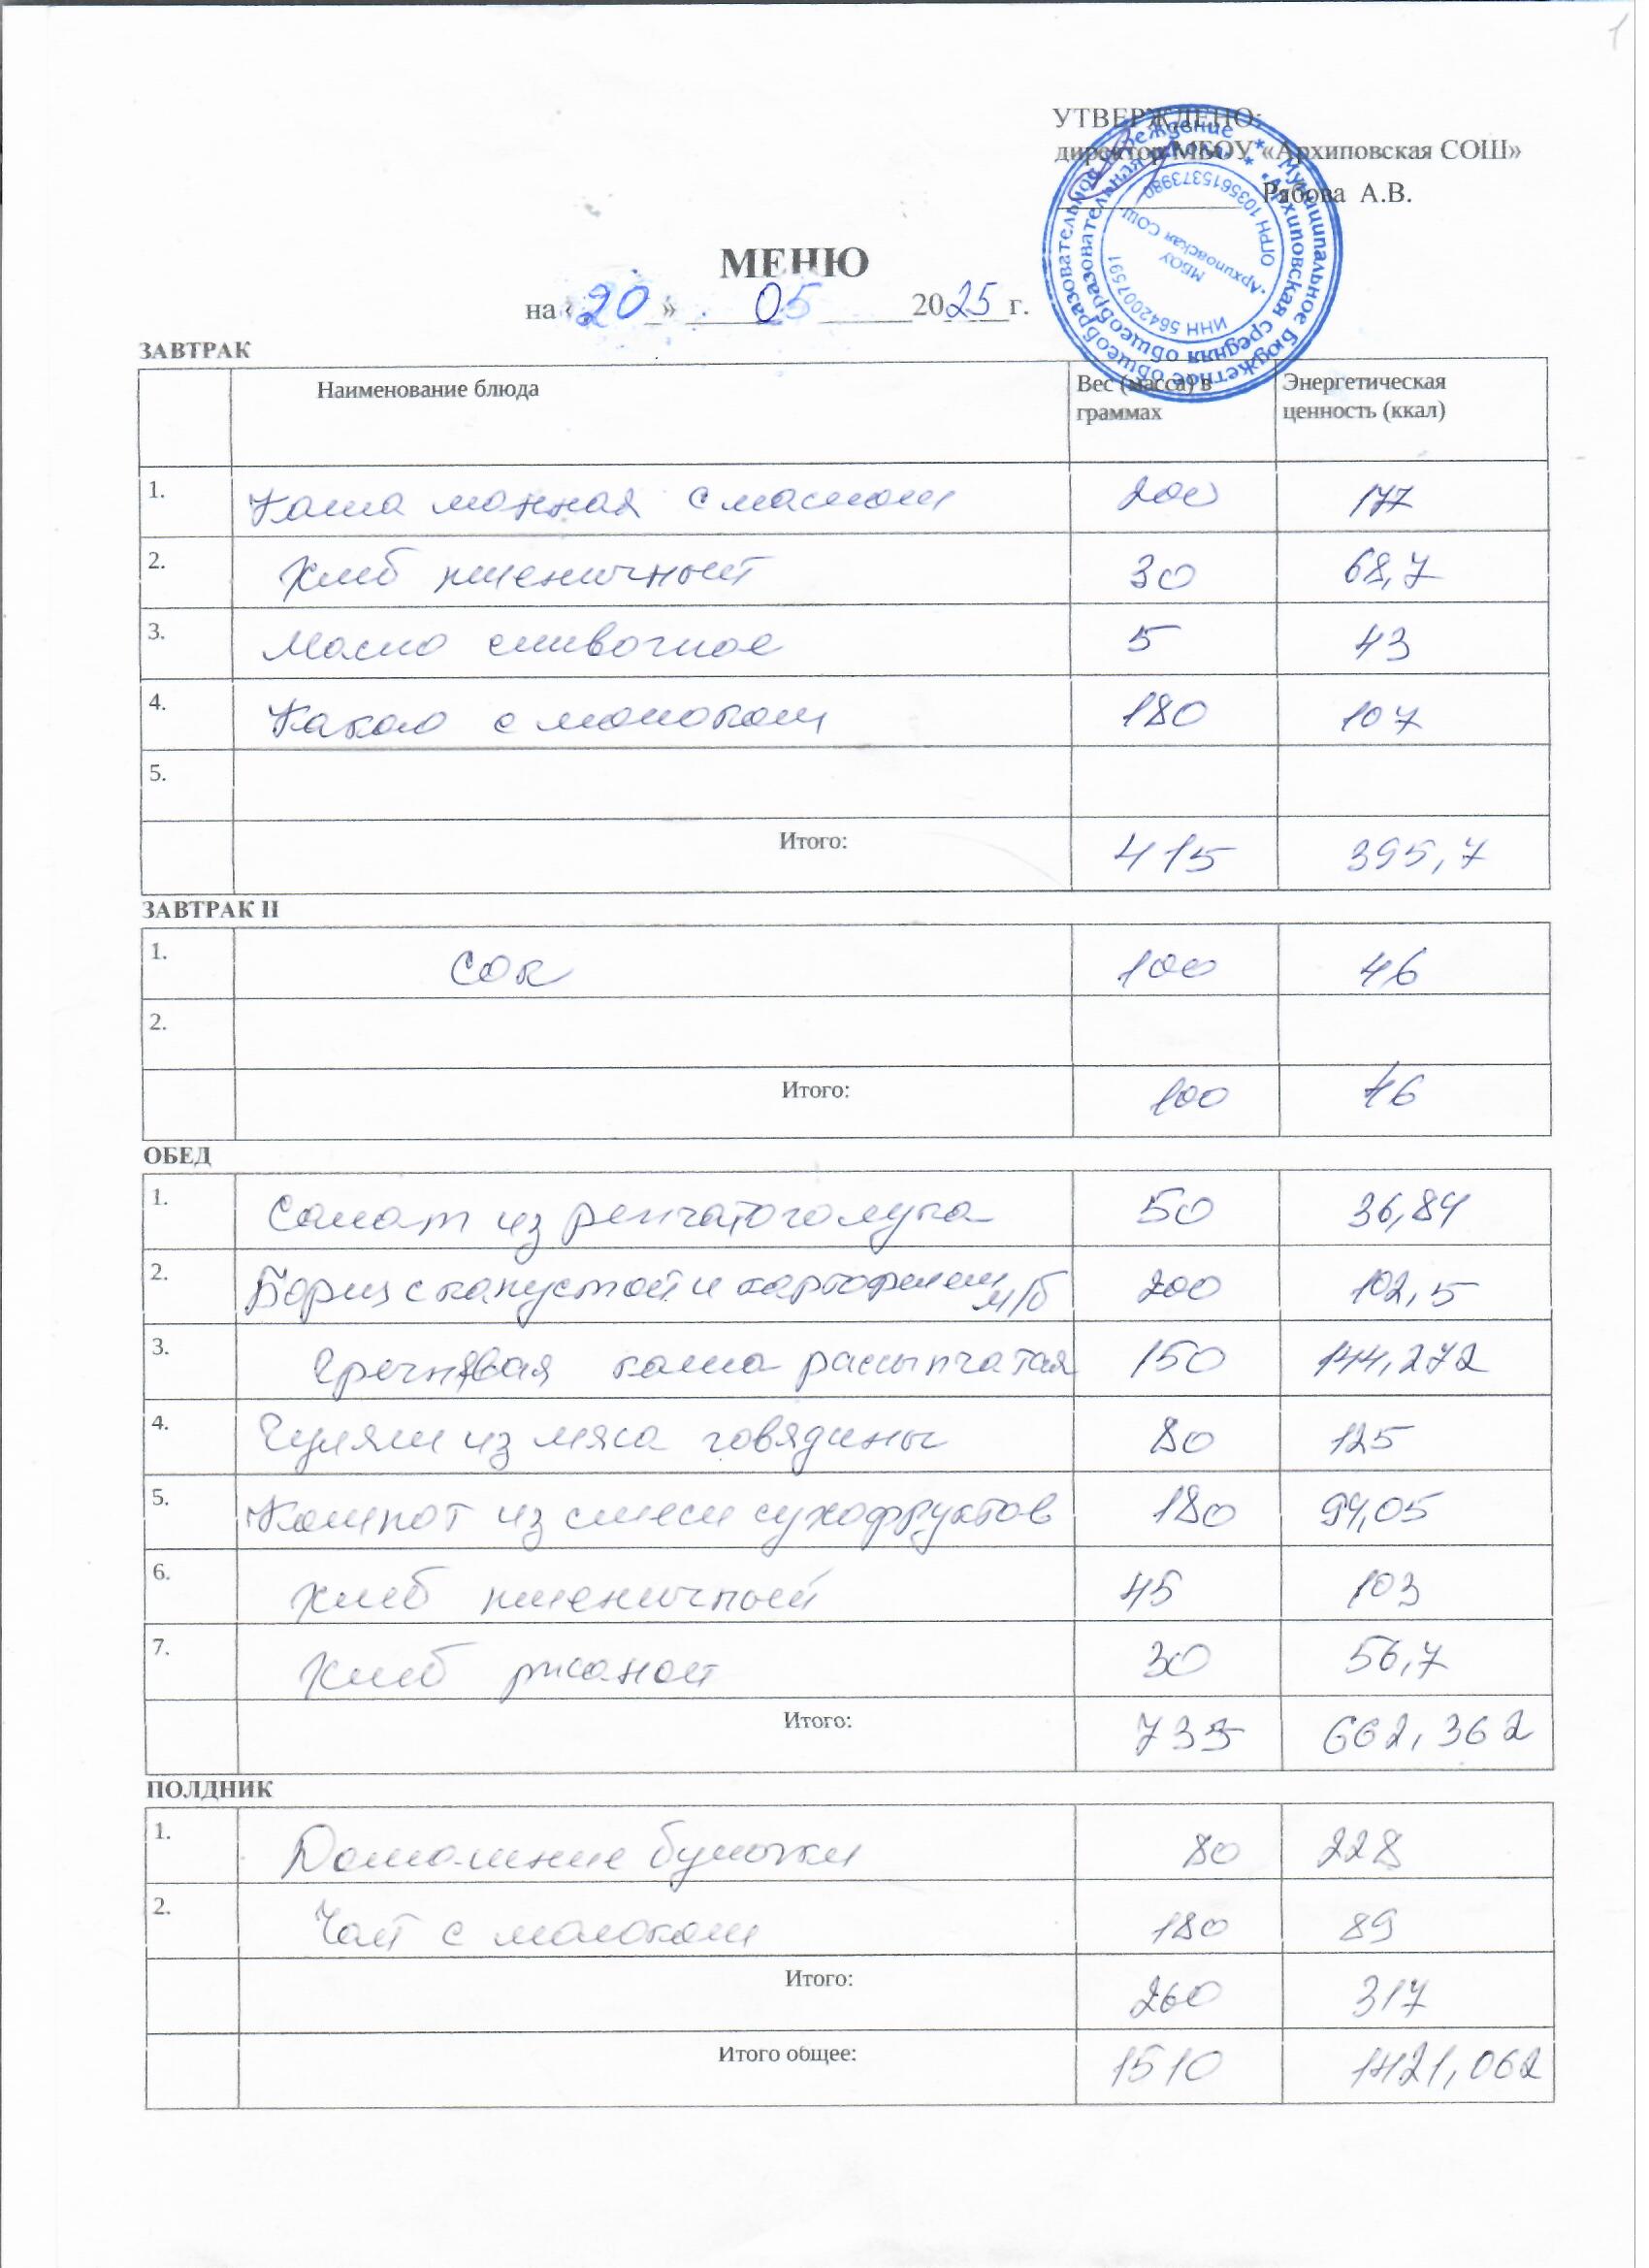 1
УТВЕРЖДЕНО:
директор МБОУ «Архиповская СОШ»
Рябова А.В.
Муниципальное бюджетное общеобразовательное учреждение
«Архиповская средняя общеобразовательная школа»
ОГРН 1035615373980
ИНН 5642007591
МБОУ
«Архиповская СОШ»
МЕНЮ
на «20» 05 2025 г.
ЗАВТРАК
Наименование блюда Вес (масса) в граммах Энергетическая ценность (ккал)
1. Каша манная с маслом 200 177
2. Хлеб пшеничный 30 68,7
3. Масло сливочное 5 43
4. Какао с молоком 180 107
5.
Итого: 415 395,7
ЗАВТРАК II
1. Сок 100 46
2.
Итого: 100 46
ОБЕД
1. Салат из репчатого лука 50 36,84
2. Борщ с капустой и картофелем м/б 200 102,5
3. Гречневая каша рассыпчатая 150 144,272
4. Гуляш из мяса говядины 80 125
5. Компот из смеси сухофруктов 180 94,05
6. Хлеб пшеничный 45 103
7. Хлеб ржаной 30 56,7
Итого: 735 662,362
ПОЛДНИК
1. Домашние булочки 80 228
2. Чай с молоком 180 89
Итого: 260 317
Итого общее: 1510 1421,062